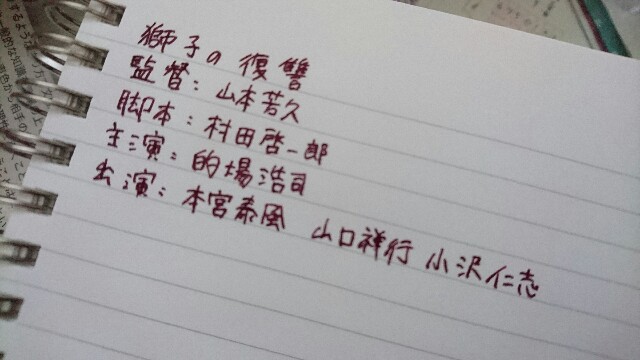 獅子の復讐
監督：山本芳久
脚本：村田啓一郎
主演：的場浩司
出演：本宮泰風 山口祥行 小沢仁志